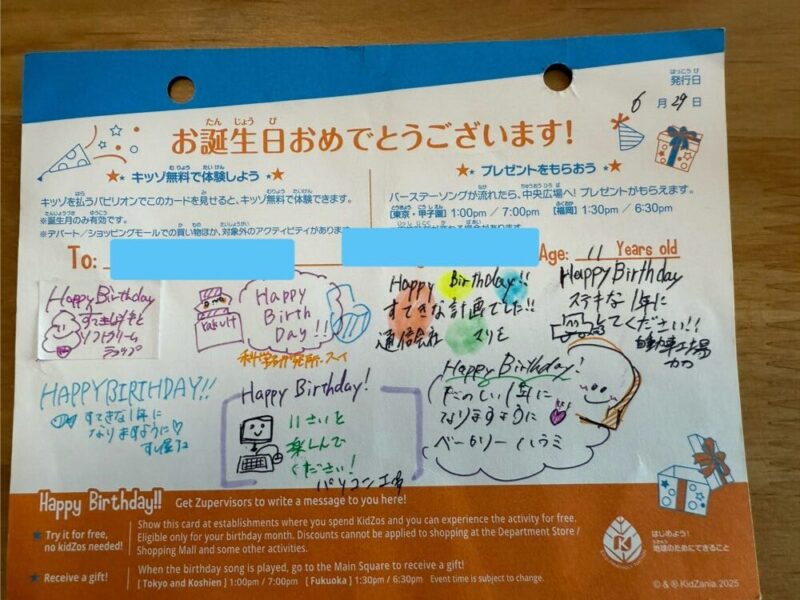 発行日
6月29日
お誕生日おめでとうございます!
キッゾ無料で体験しよう
キッゾを払うパビリオンでこのカードを見せると、キッゾ無料で体験できます。
※誕生月のみ有効です。
※デパート/ショッピングモールでの買い物ほか、対象外のアクティビティがあります。
プレゼントをもらおう
バースデーソングが流れたら、中央広場へ! プレゼントがもらえます。
[東京・甲子園] 1:00pm / 7:00pm [福岡] 1:30pm / 6:30pm
To:
Age: 11 Years old
Happy Birthday
すてきな
ソフトクリーム
Happy
Birth
Day!!
Yakult
科学研究所
Happy Birthday!!
すてきな計画でした!!
通信会社
Happy Birthday
ステキな1年に
してください!!
自動車工場
HAPPY BIRTHDAY!!
すてきな1年に
なりますように♡
すし屋
Happy Birthday!
11さいを
楽しんで
ください!
パソコン工場
Happy Birthday!
たのしい1年に
なりますように
ベーカリー
Happy Birthday!! Get Zupervisors to write a message to you here!
★ Try it for free, no kidZos needed!
Show this card at establishments where you spend KidZos and you can experience the activity for free.
Eligible only for your birthday month. Discounts cannot be applied to shopping at the Department Store /
Shopping Mall and some other activities.
★ Receive a gift!
When the birthday song is played, go to the Main Square to receive a gift!
[ Tokyo and Koshien ] 1:00pm / 7:00pm [ Fukuoka ] 1:30pm / 6:30pm Event time is subject to change.
K
はじめよう!
地球のためにできること
© & ® KidZania 2025